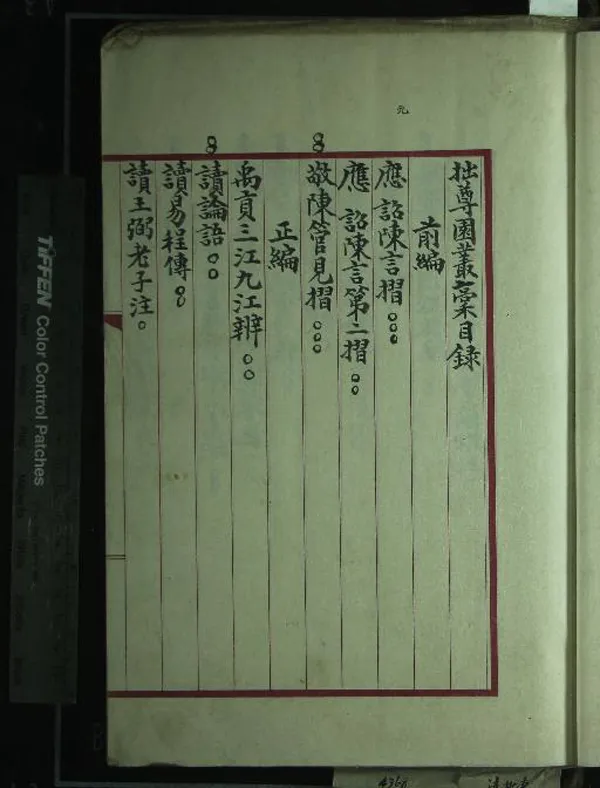 元
拙尊園叢藁目錄
前編
應 詔陳言摺。。。
應 詔陳言第二摺。。
8 敬陳管見摺。。。
正編
禹貢三江九江辨。。
8 讀論語。。
讀易程傳。。
讀王弼老子注。
TIFFEN Color Control Patches